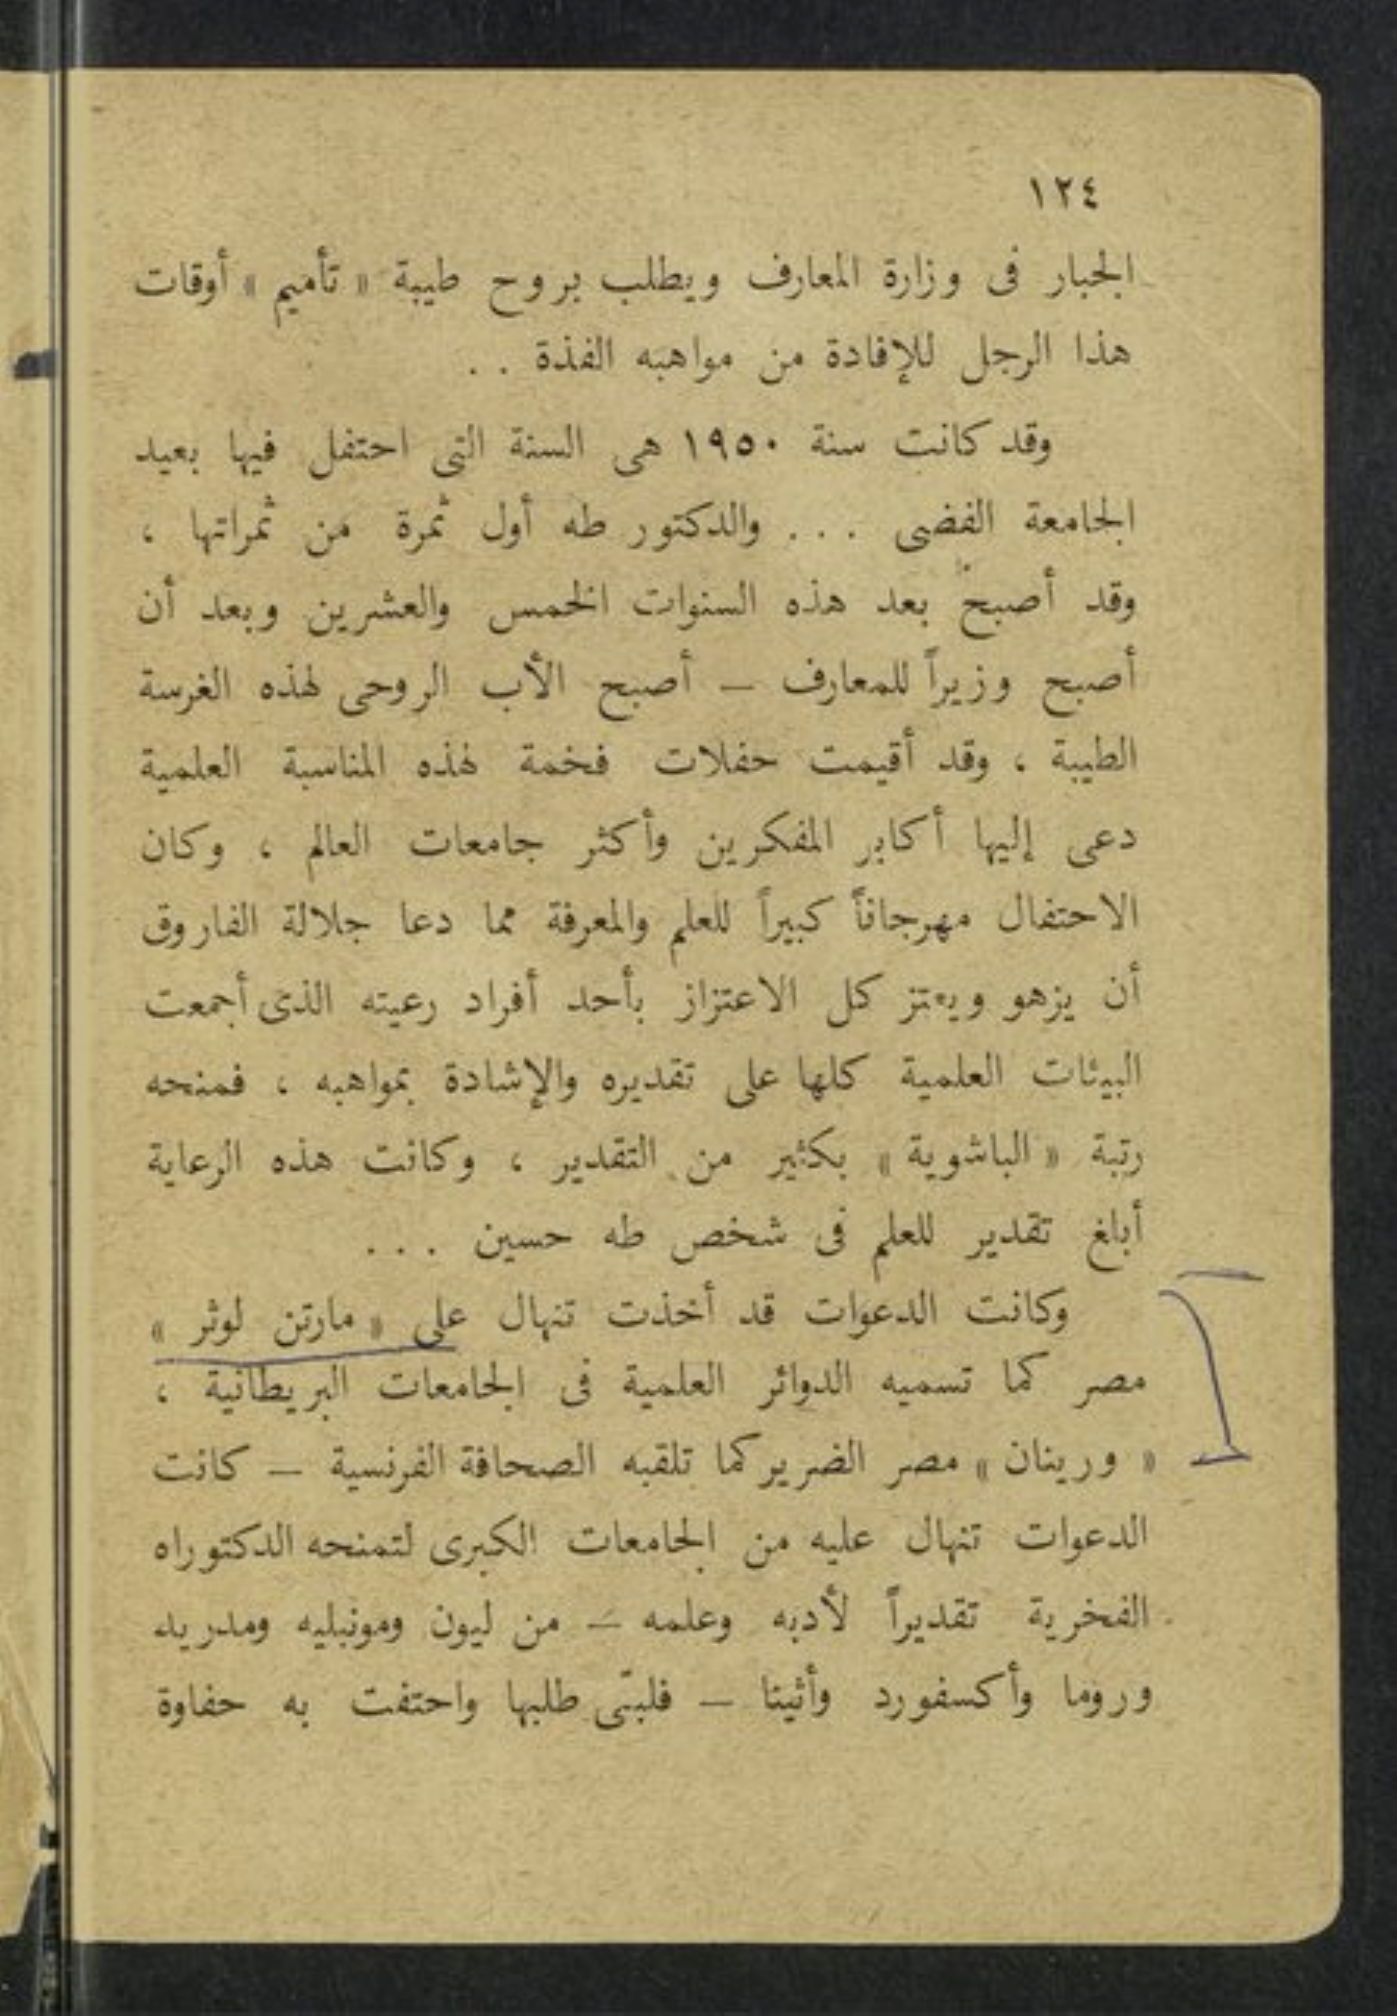 ١٢٤
الجبار فى وزارة المعارف ويطلب بروح طيبة « تأميم » أوقات
هذا الرجل للإفادة من مواهبه الفذة . .
وقد كانت سنة ١٩٥٠ هى السنة التى احتفل فيها بعيد
الجامعة الفضى . . . والدكتور طه أول ثمرة من ثمراتها ،
وقد أصبح بعد هذه السنوات الخمس والعشرين وبعد أن
أصبح وزيراً للمعارف – أصبح الأب الروحى لهذه الغرسة
الطيبة ، وقد أقيمت حفلات فخمة لهذه المناسبة العلمية
دعى إليها أكابر المفكرين وأكثر جامعات العالم ، وكان
الاحتفال مهرجاناً كبيراً للعلم والمعرفة مما دعا جلالة الفاروق
أن يزهو ويعتز كل الاعتزاز بأحد أفراد رعيته الذى أجمعت
البيئات العلمية كلها على تقديره والإشادة بمواهبه ، فمنحه
رتبة « الباشوية » بكثير من التقدير ، وكانت هذه الرعاية
أبلغ تقدير للعلم فى شخص طه حسين . . .
وكانت الدعوات قد أخذت تنهال على « مارتن لوثر »
مصر كما تسميه الدوائر العلمية فى الجامعات البريطانية ،
« ورينان » مصر الضرير كما تلقبه الصحافة الفرنسية – كانت
الدعوات تنهال عليه من الجامعات الكبرى لتمنحه الدكتوراه
الفخرية تقديراً لأدبه وعلمه – من ليون ومونبليه ومدريد
وروما وأكسفورد وأثينا – فلبّى طلبها واحتفت به حفاوة